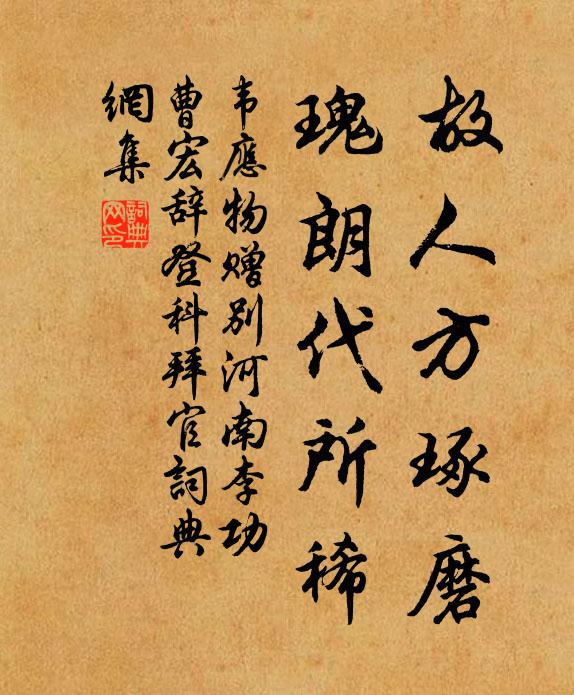 故人方琢磨
瑰朗代所稀
韦應物赠别河南李功
曹宏辞登科拜官詞典
網集
詞典
网印